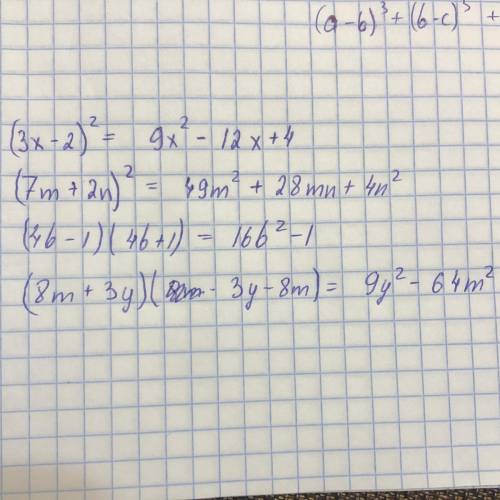 (a-b)³ + (b-c)³ +
(3x-2)² = 9x² - 12x + 4
(7m + 2n)² = 49m² + 28mn + 4n²
(4b-1)(4b+1) = 16b² - 1
(8m + 3y)(- 3y - 8m) = 9y² - 64m²